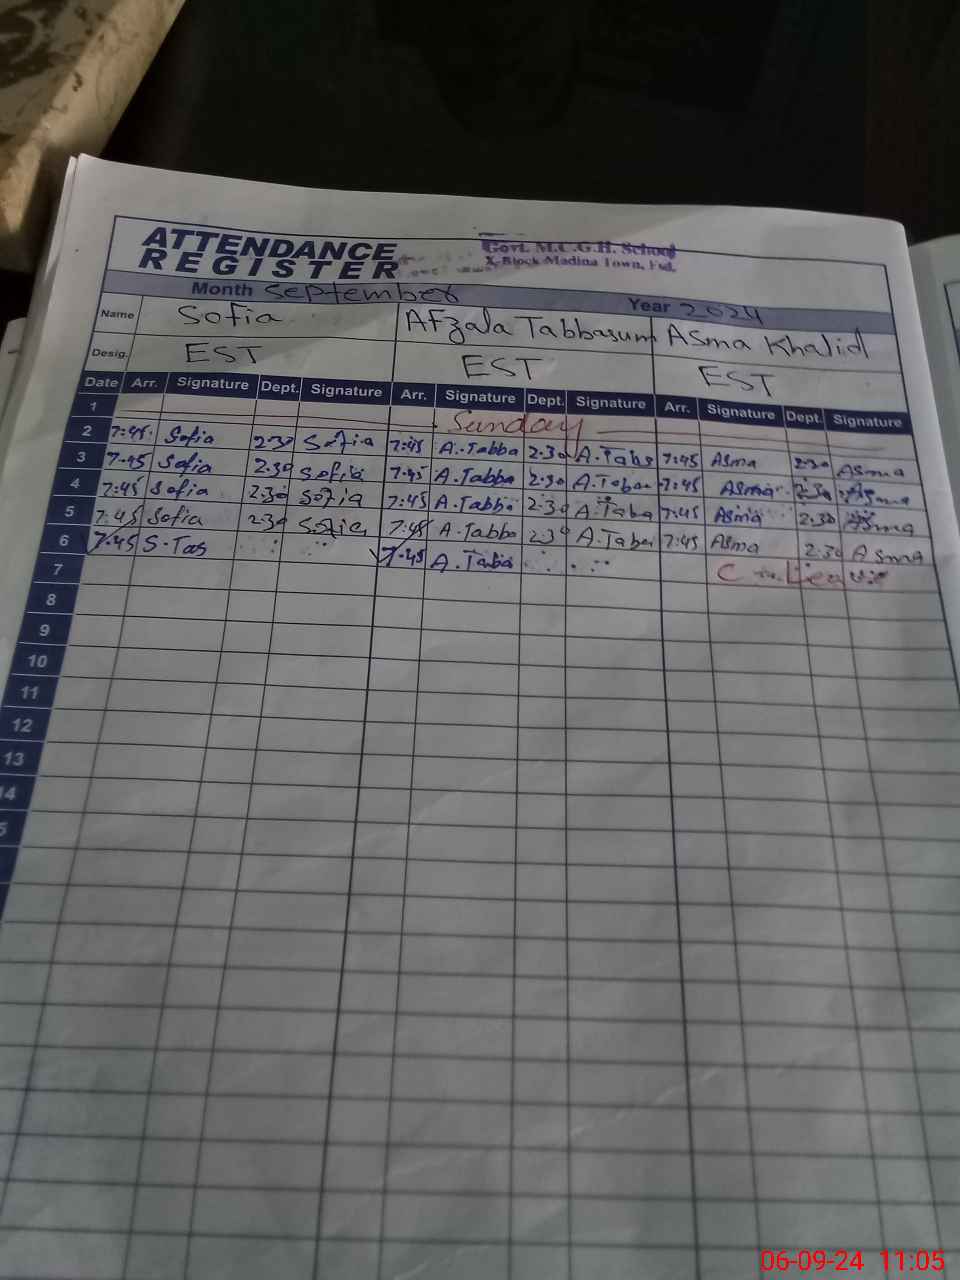 ATTENDANCE REGISTER
Govt. M.C.G.H. School
X-Block Madina Town, Fsd.
Month September Year 2024
Name Sofia Afzala Tabbasum Asma Khalid
Desig. EST EST EST
Date Arr. Signature Dept. Signature Arr. Signature Dept. Signature Arr. Signature Dept. Signature
1 Sunday
2 7:45 Sofia 2:30 Sofia 7:45 A.Tabba 2.30 A.Taba 7:45 Asma 2:30 Asma
3 7.45 Sofia 2.30 Sofia 7:45 A.Tabba 2.30 A.Taba 7:45 Asma 2:30 Asma
4 7:45 Sofia 2:30 Sofia 7:45 A.Tabba 2:30 A.Taba 7:45 Asma 2:30 Asma
5 7:45 Sofia 2:30 Sofia 7:45 A.Tabba 2:30 A.Taba 7:45 Asma 2:30 Asma
6 7.45 S.Tas 7.45 A.Taba C Leave
7
8
9
10
11
12
13
14
5
06-09-24 11:05